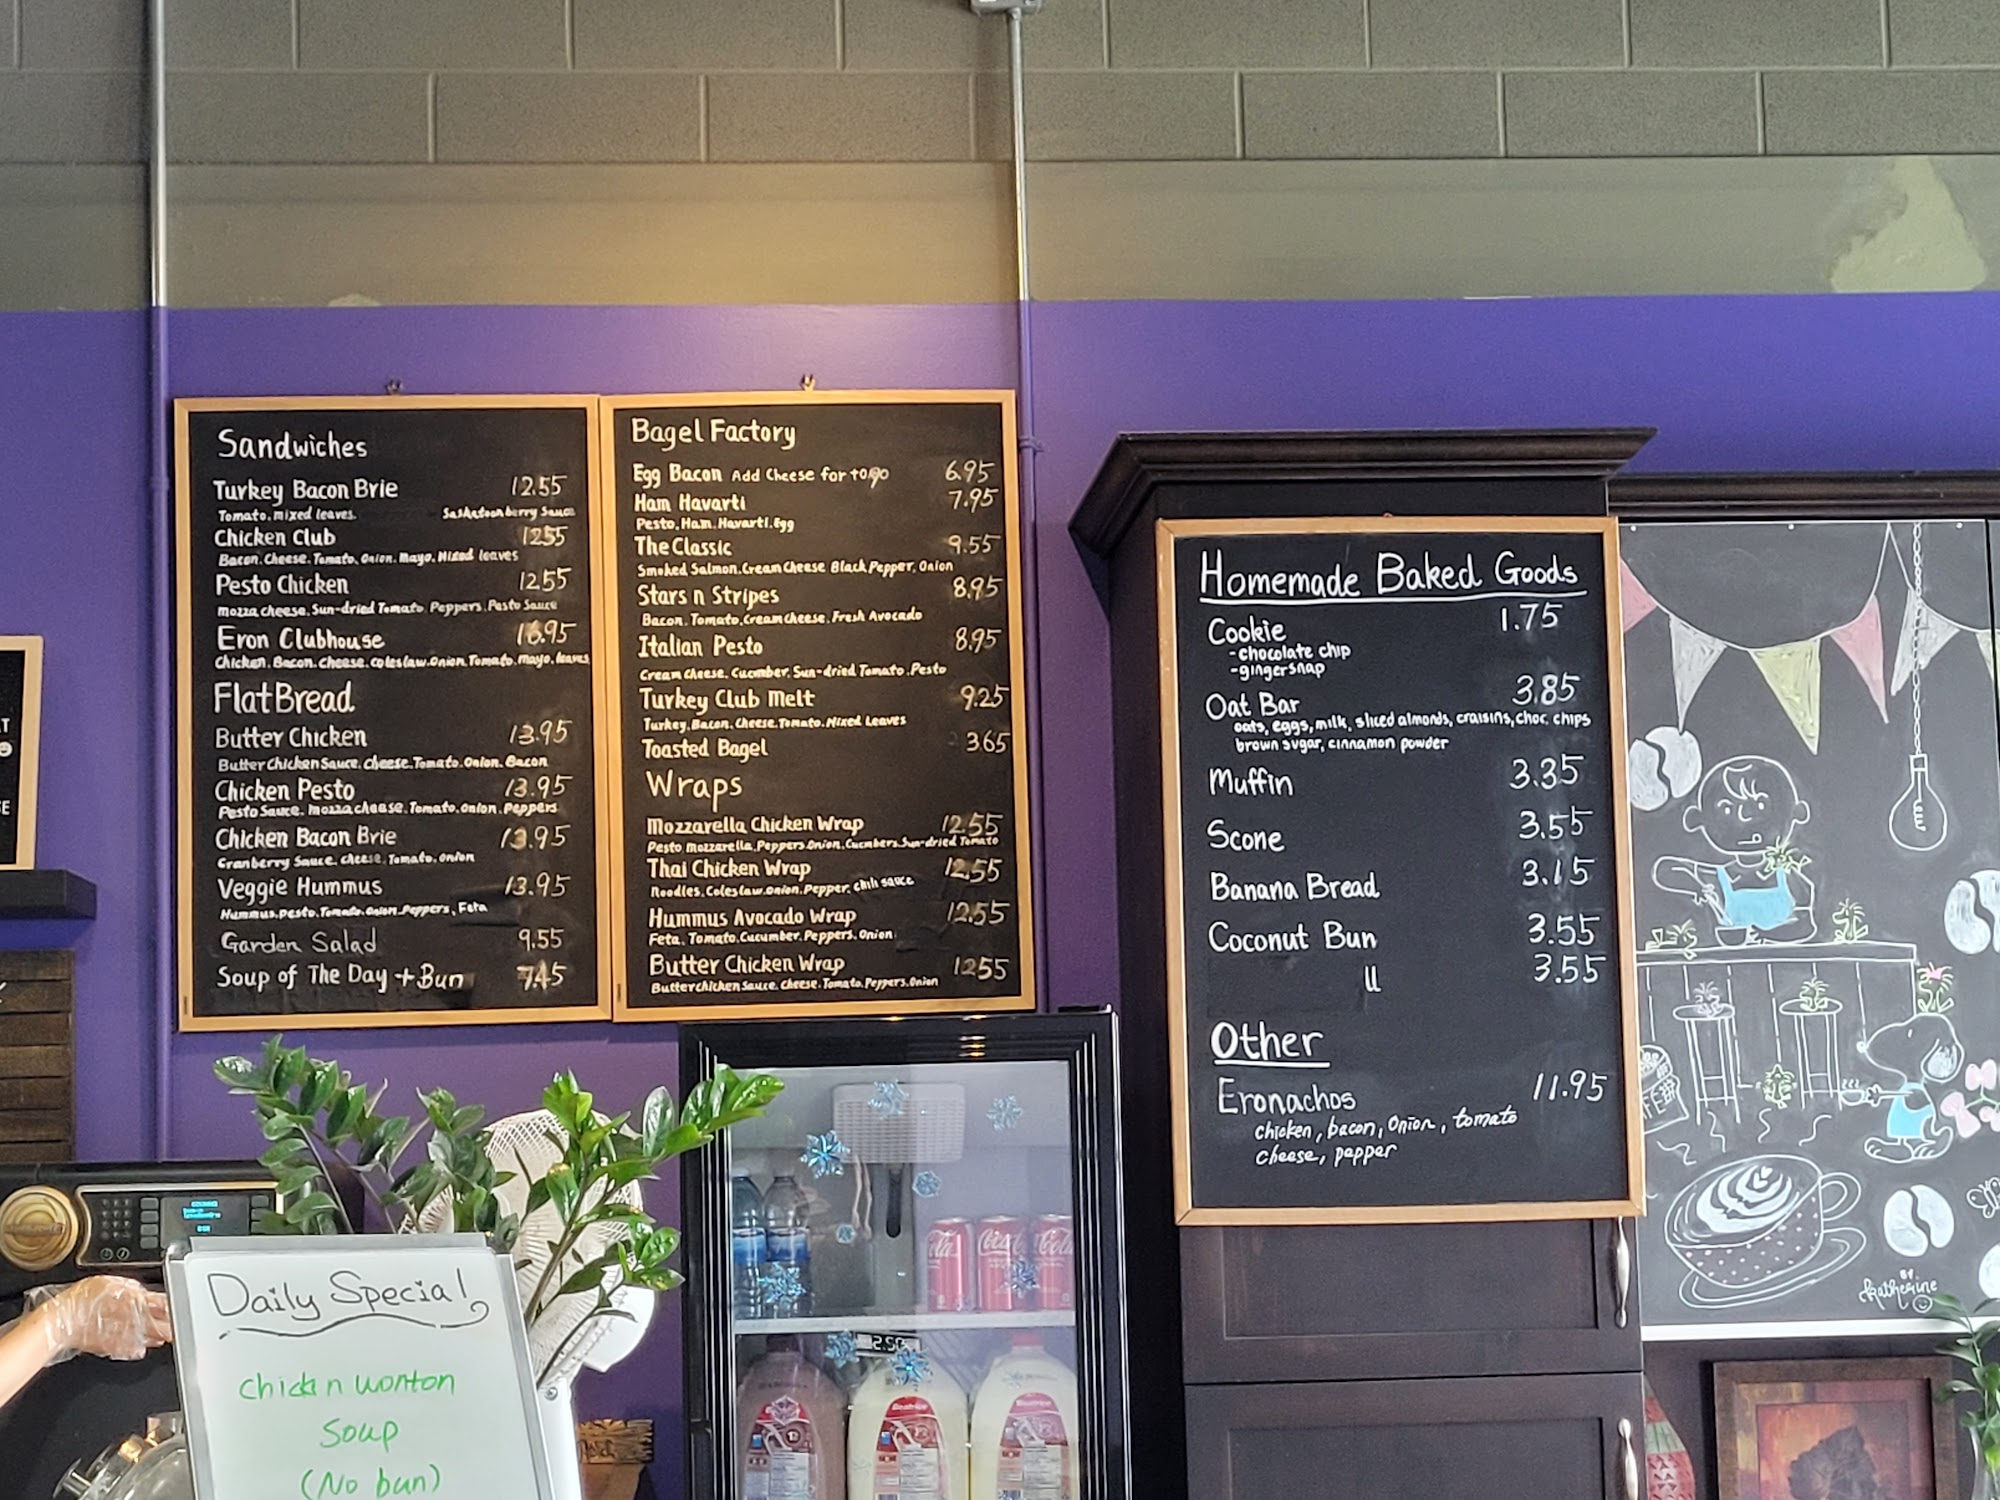 Sandwiches
Turkey Bacon Brie 12.55
Tomato. mixed leaves. Saskatoonberry Sauce
Chicken Club 12.55
Bacon. Cheese. Tomato. Onion. Mayo. Mixed leaves
Pesto Chicken 12.55
mozza cheese. Sun-dried Tomato. Peppers. Pesto Sauce
Eron Clubhouse 16.95
Chicken. Bacon. Cheese. coleslaw. Onion. Tomato. mayo. leaves
FlatBread
Butter Chicken 13.95
Butter Chicken Sauce. Cheese. Tomato. Onion. Bacon
Chicken Pesto 13.95
Pesto Sauce. mozza cheese. Tomato. onion. Peppers
Chicken Bacon Brie 13.95
Cranberry Sauce. cheese. Tomato. onion
Veggie Hummus 13.95
Hummus. pesto. Tomato. Onion. Peppers, Feta
Garden Salad 9.55
Soup of The Day + Bun 7.45
Bagel Factory
Egg Bacon Add Cheese for
6.95
Ham Havarti 7.95
Pesto. Ham. Havarti. Egg
The Classic 9.55
Smoked Salmon. Cream Cheese Black Pepper, Onion
Stars n Stripes 8.95
Bacon. Tomato. Cream cheese. Fresh Avocado
Italian Pesto 8.95
Cream cheese. Cucumber. Sun-dried Tomato. Pesto
Turkey Club Melt 9.25
Turkey. Bacon. Cheese. Tomato. Mixed Leaves
Toasted Bagel 3.65
Wraps
Mozzarella Chicken Wrap 12.55
Pesto mozzarella. Peppers. Onion. Cucmbers. Sun-dried Tomato
Thai Chicken Wrap 12.55
Noodles. Coleslaw. onion. Pepper. chili sauce
Hummus Avocado Wrap 12.55
Feta. Tomato. Cucumber. Peppers. Onion
Butter Chicken Wrap 12.55
Butter chicken Sauce. cheese. Tomato. Peppers. Onion
Homemade Baked Goods
Cookie 1.75
- chocolate chip
- gingersnap
Oat Bar 3.85
oats, eggs, milk, sliced almonds, craisins, choc. chips
brown sugar, cinnamon powder
Muffin 3.35
Scone 3.55
Banana Bread 3.15
Coconut Bun 3.55
ll 3.55
Other
Eronachos 11.95
chicken, bacon, onion, tomato
cheese, pepper
BY
Katherine
Daily Special
chicken wonton
soup
(No bun)
Coca-Cola
Beatrice
Beatrice